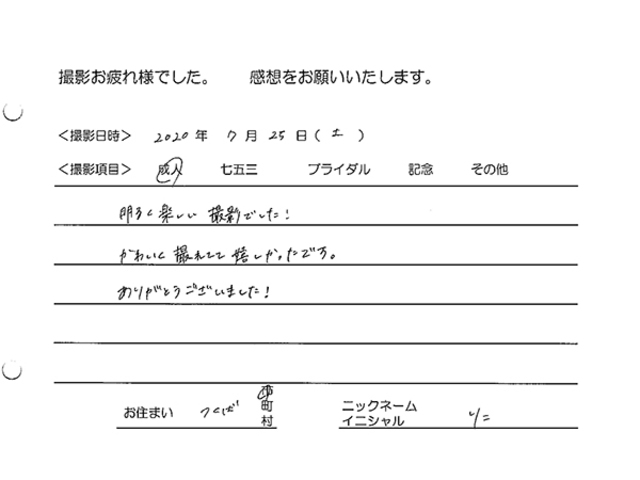 撮影お疲れ様でした。 感想をお願いいたします。
<撮影日時> 2020年 7月 25日(土)
<撮影項目> 成人 七五三 ブライダル 記念 その他
明るく楽しい 撮影でした!
かわいく撮れてて嬉しかったです。
ありがとうございました!
お住まい つくば 市町村
ニックネーム イニシャル リニ